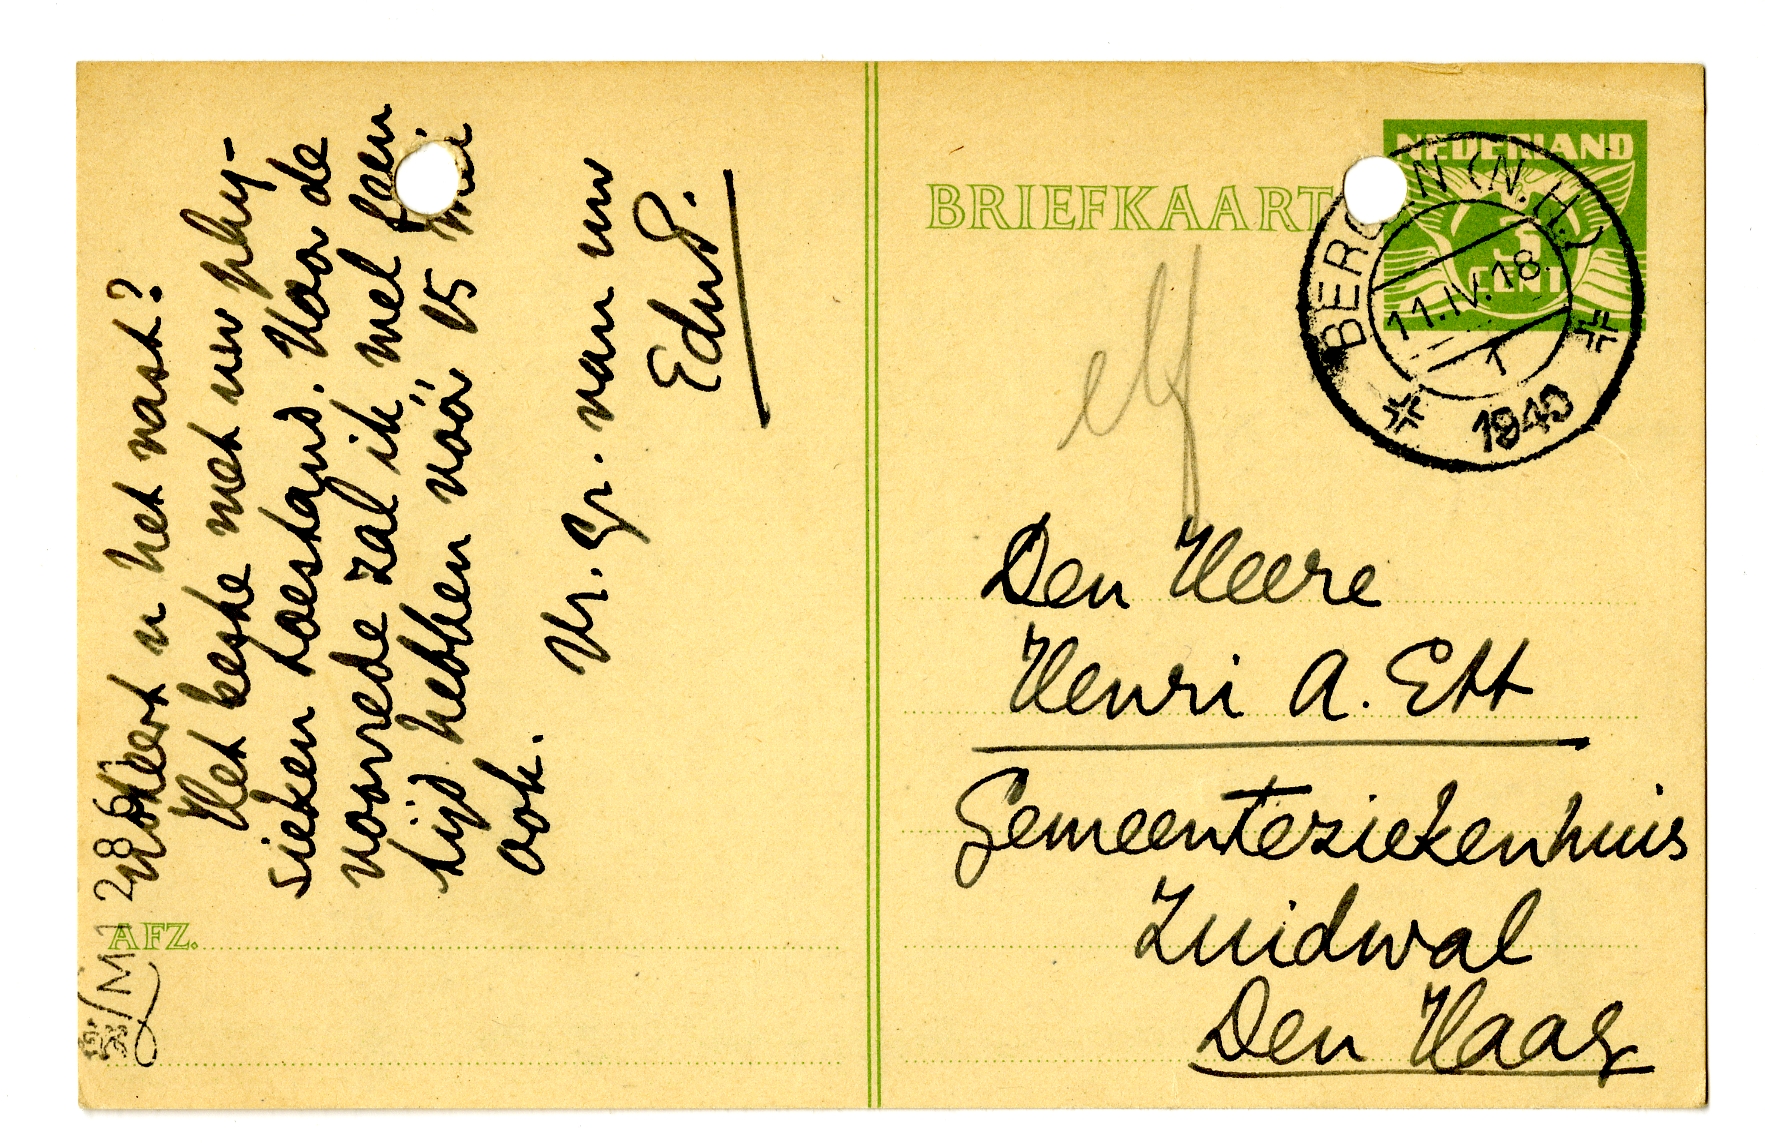 u het vast?
Het beste met uw phy-
sieken toestand. Voor de
voorrede zal ik, wel een
tijd hebben vóór 15 Mei
ook.
Vr. Gr. van uw
EduP.
AFZ.
BRIEFKAART
NEDERLAND
3
CENT
BERGEN (N.H.)
11.IV.18
1
1940
elf
Den Heere
Henri A. Ett
Gemeenteziekenhuis
Zuidwal
Den Haag